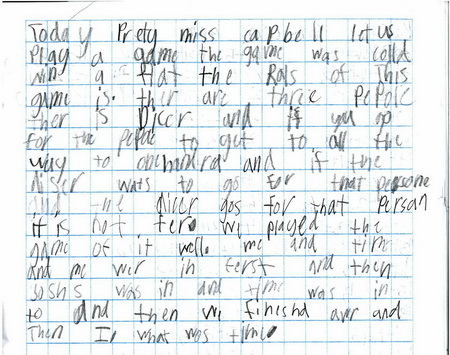 Today Prety miss ca pbell let us
Play a game the game was calld
win a that the Rols of this
game is. ther are three PePole
ther is Dicer and if you go
for the pepole to get to all the
way to onehundred and if the
diser wats to go for that persome
and the dicer gos for that Person
it is not fero we played the
game of it well. me and time
and me wer in ferst and then
was in and time was in
to and then we finishd avr and
Then I, what was time